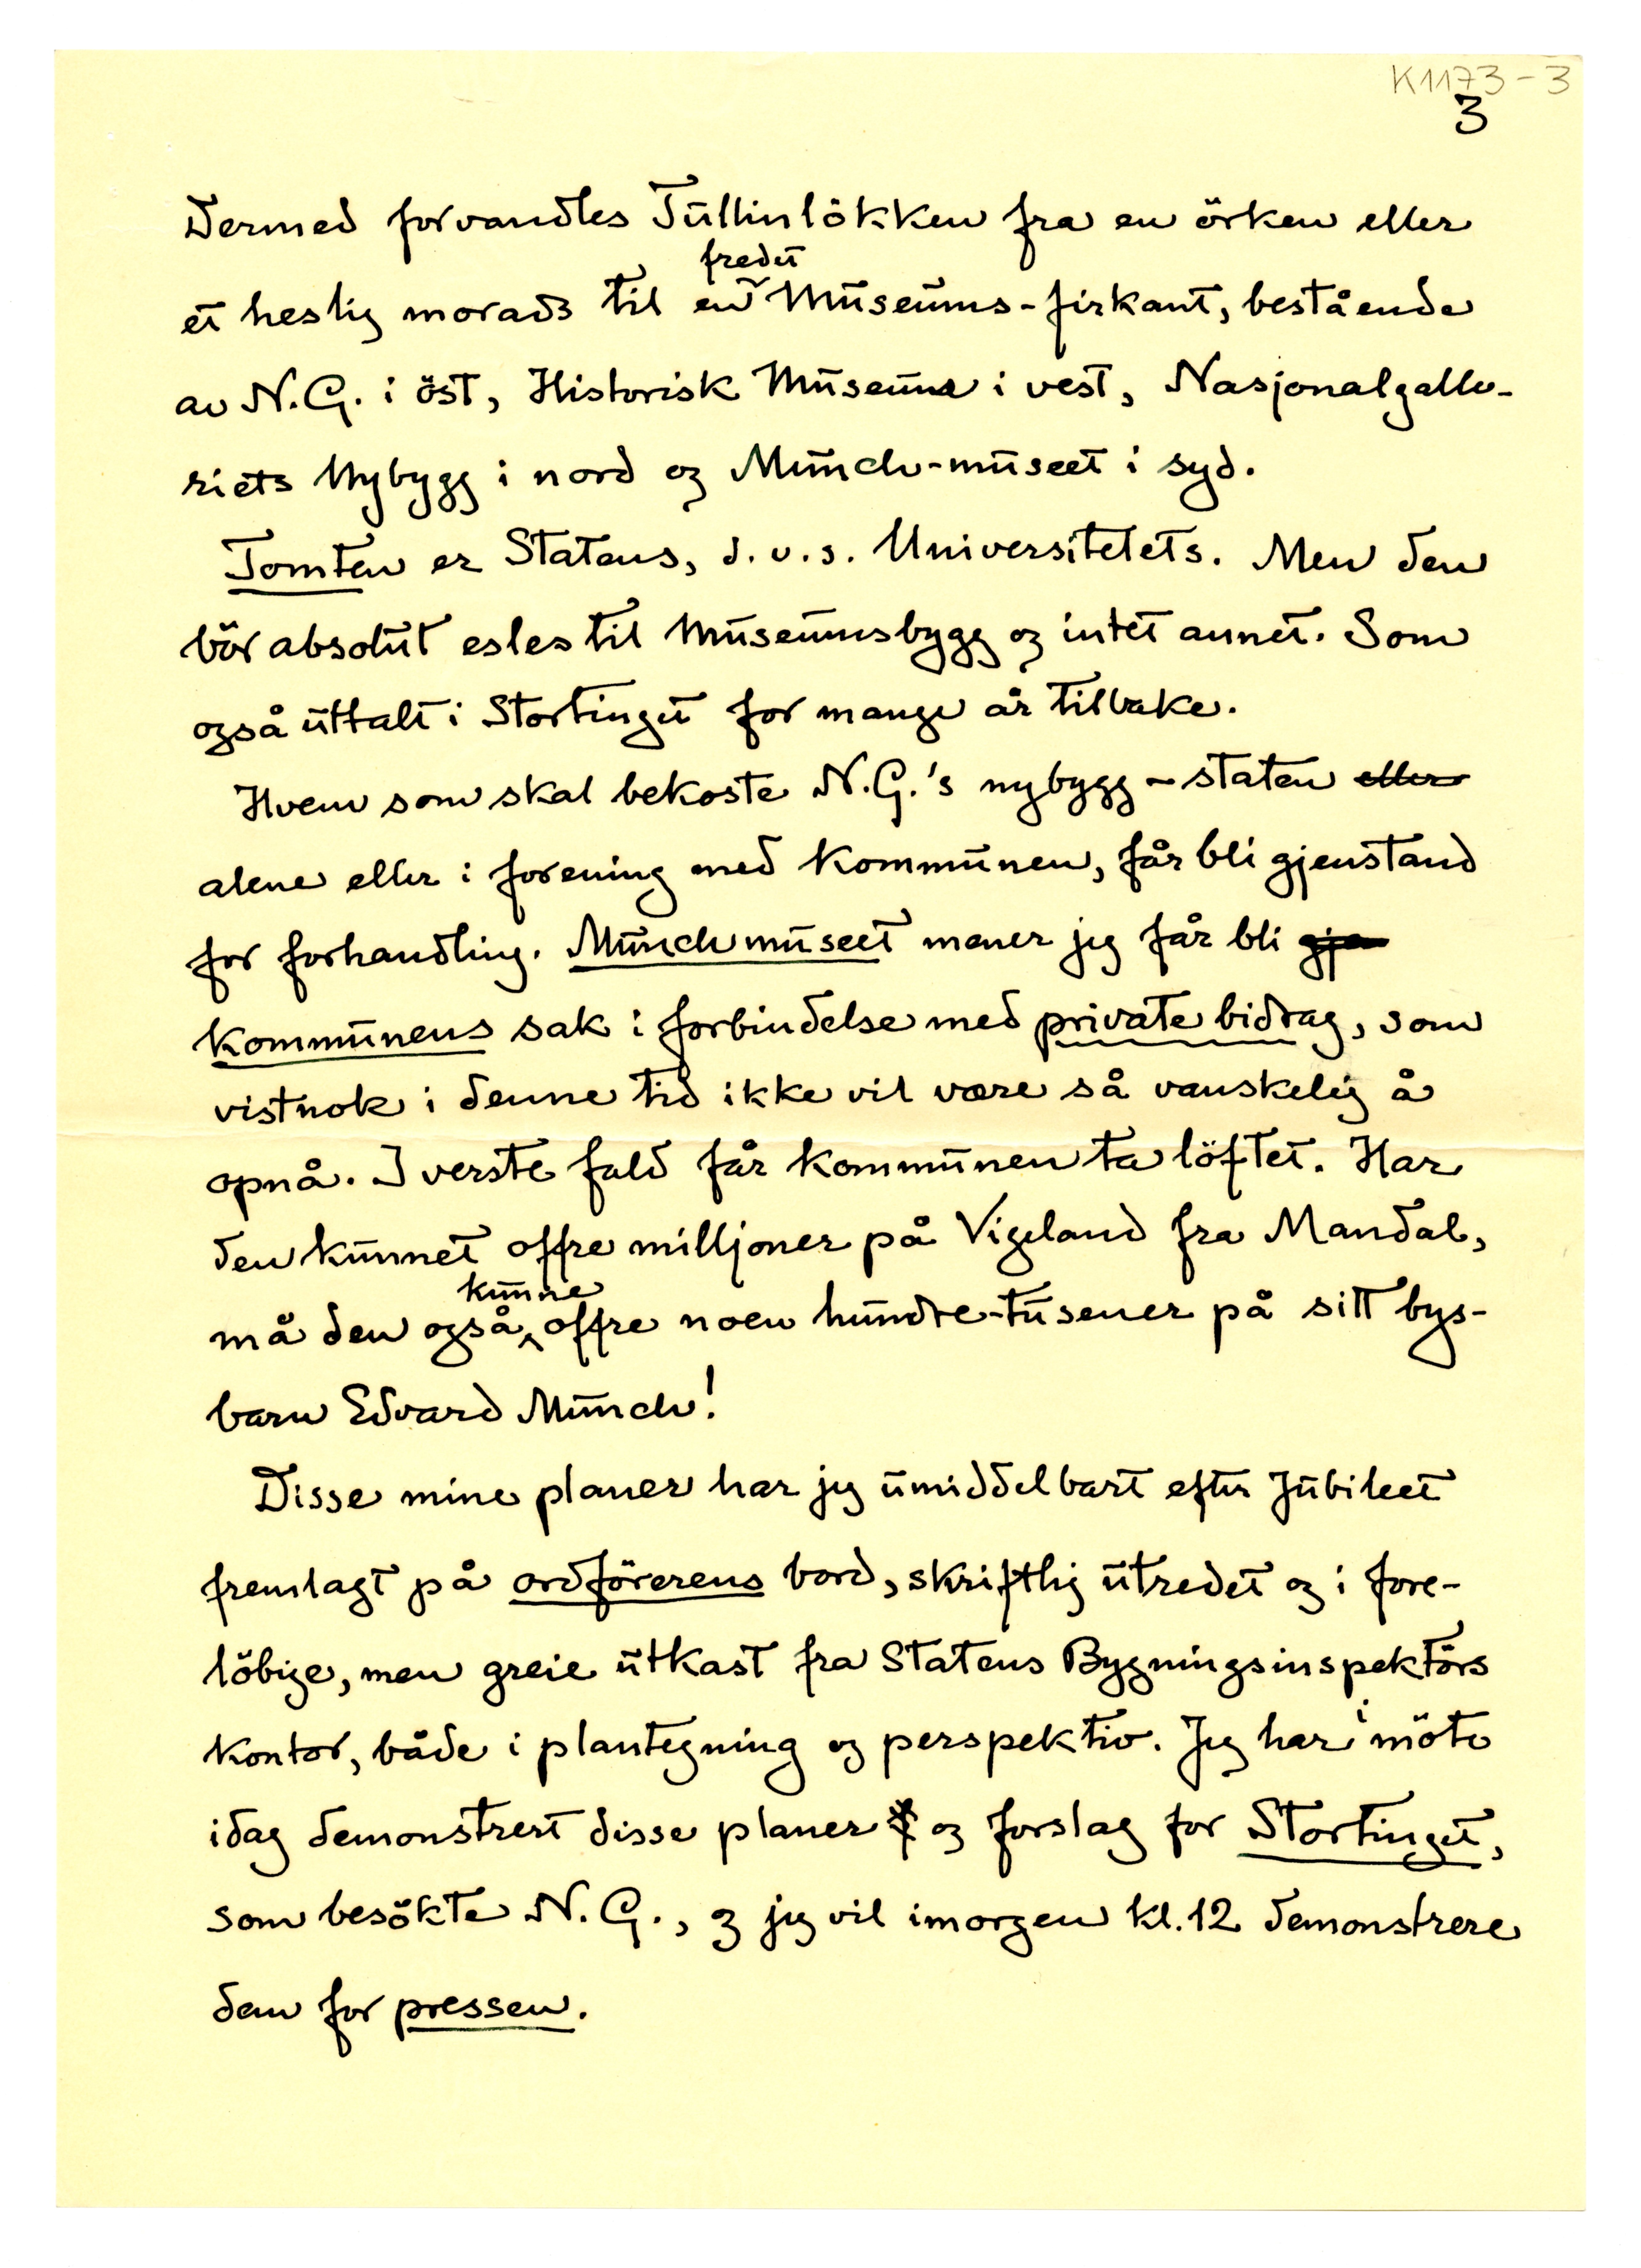 K1173-3
3
Dermed forvandles Tullinlökken fra en örken eller
fredet
et heslig morads til en Museums-firkant, bestående
av N.G. i öst, Historisk Museum i vest, Nasjonalgalle-
riets Nybygg i nord og Munch-museet i syd.
Tomten er Statens, d.v.s. Universitetets. Men den
bör absolut esles til Museumsbygg og intet annet. Som
også uttalt i Stortinget for mange år tilbake.
Hvem som skal bekoste N.G.'s nybygg - staten eller
alene eller i forening med Kommunen, får bli gjenstand
for forhandling. Munchmuseet mener jeg får bli gjen
Kommunens sak i forbindelse med private bidrag, som
vistnok i denne tid ikke vil være så vanskelig å
opnå. I verste fald får Kommunen ta löftet. Har
den kunnet offre milljoner på Vigeland fra Mandal,
kunne
må den også offre noen hundre-tusener på sitt bys-
barn Edvard Munch!
Disse mine planer har jeg umiddelbart efter Jubileet
fremlagt på ordförerens bord, skriftlig utredet og i fore-
löbige, men greie utkast fra Statens Bygningsinspektörs
Kontor, både i plantegning og perspektiv. Jeg har i möte
idag demonstrert disse planer og forslag for Stortinget,
som besökte N.G., og jeg vil imorgen kl. 12 demonstrere
dem for pressen.